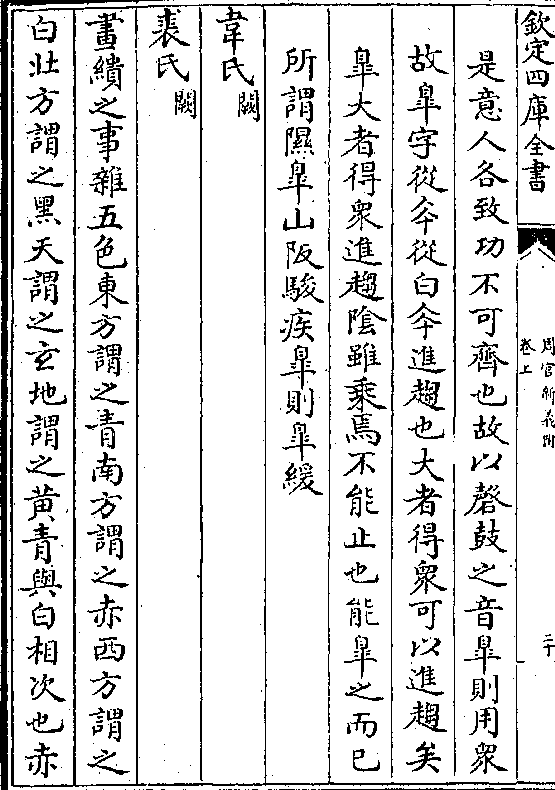 欽定四庫全書
周官新義附
卷上
二十
是意人各致功不可齊也故以鼛鼓之音臯則用衆
故臯字從夲從白夲進趨也大者得衆可以進趨矣
臯大者得衆進趨陰雖乘焉不能止也能臯之而已
所謂隰臯山阪駿疾臯則臯緩
韋氏闕
裘氏闕
畫繢之事雜五色東方謂之青南方謂之赤西方謂之
白北方謂之黑天謂之玄地謂之黃青與白相次也赤